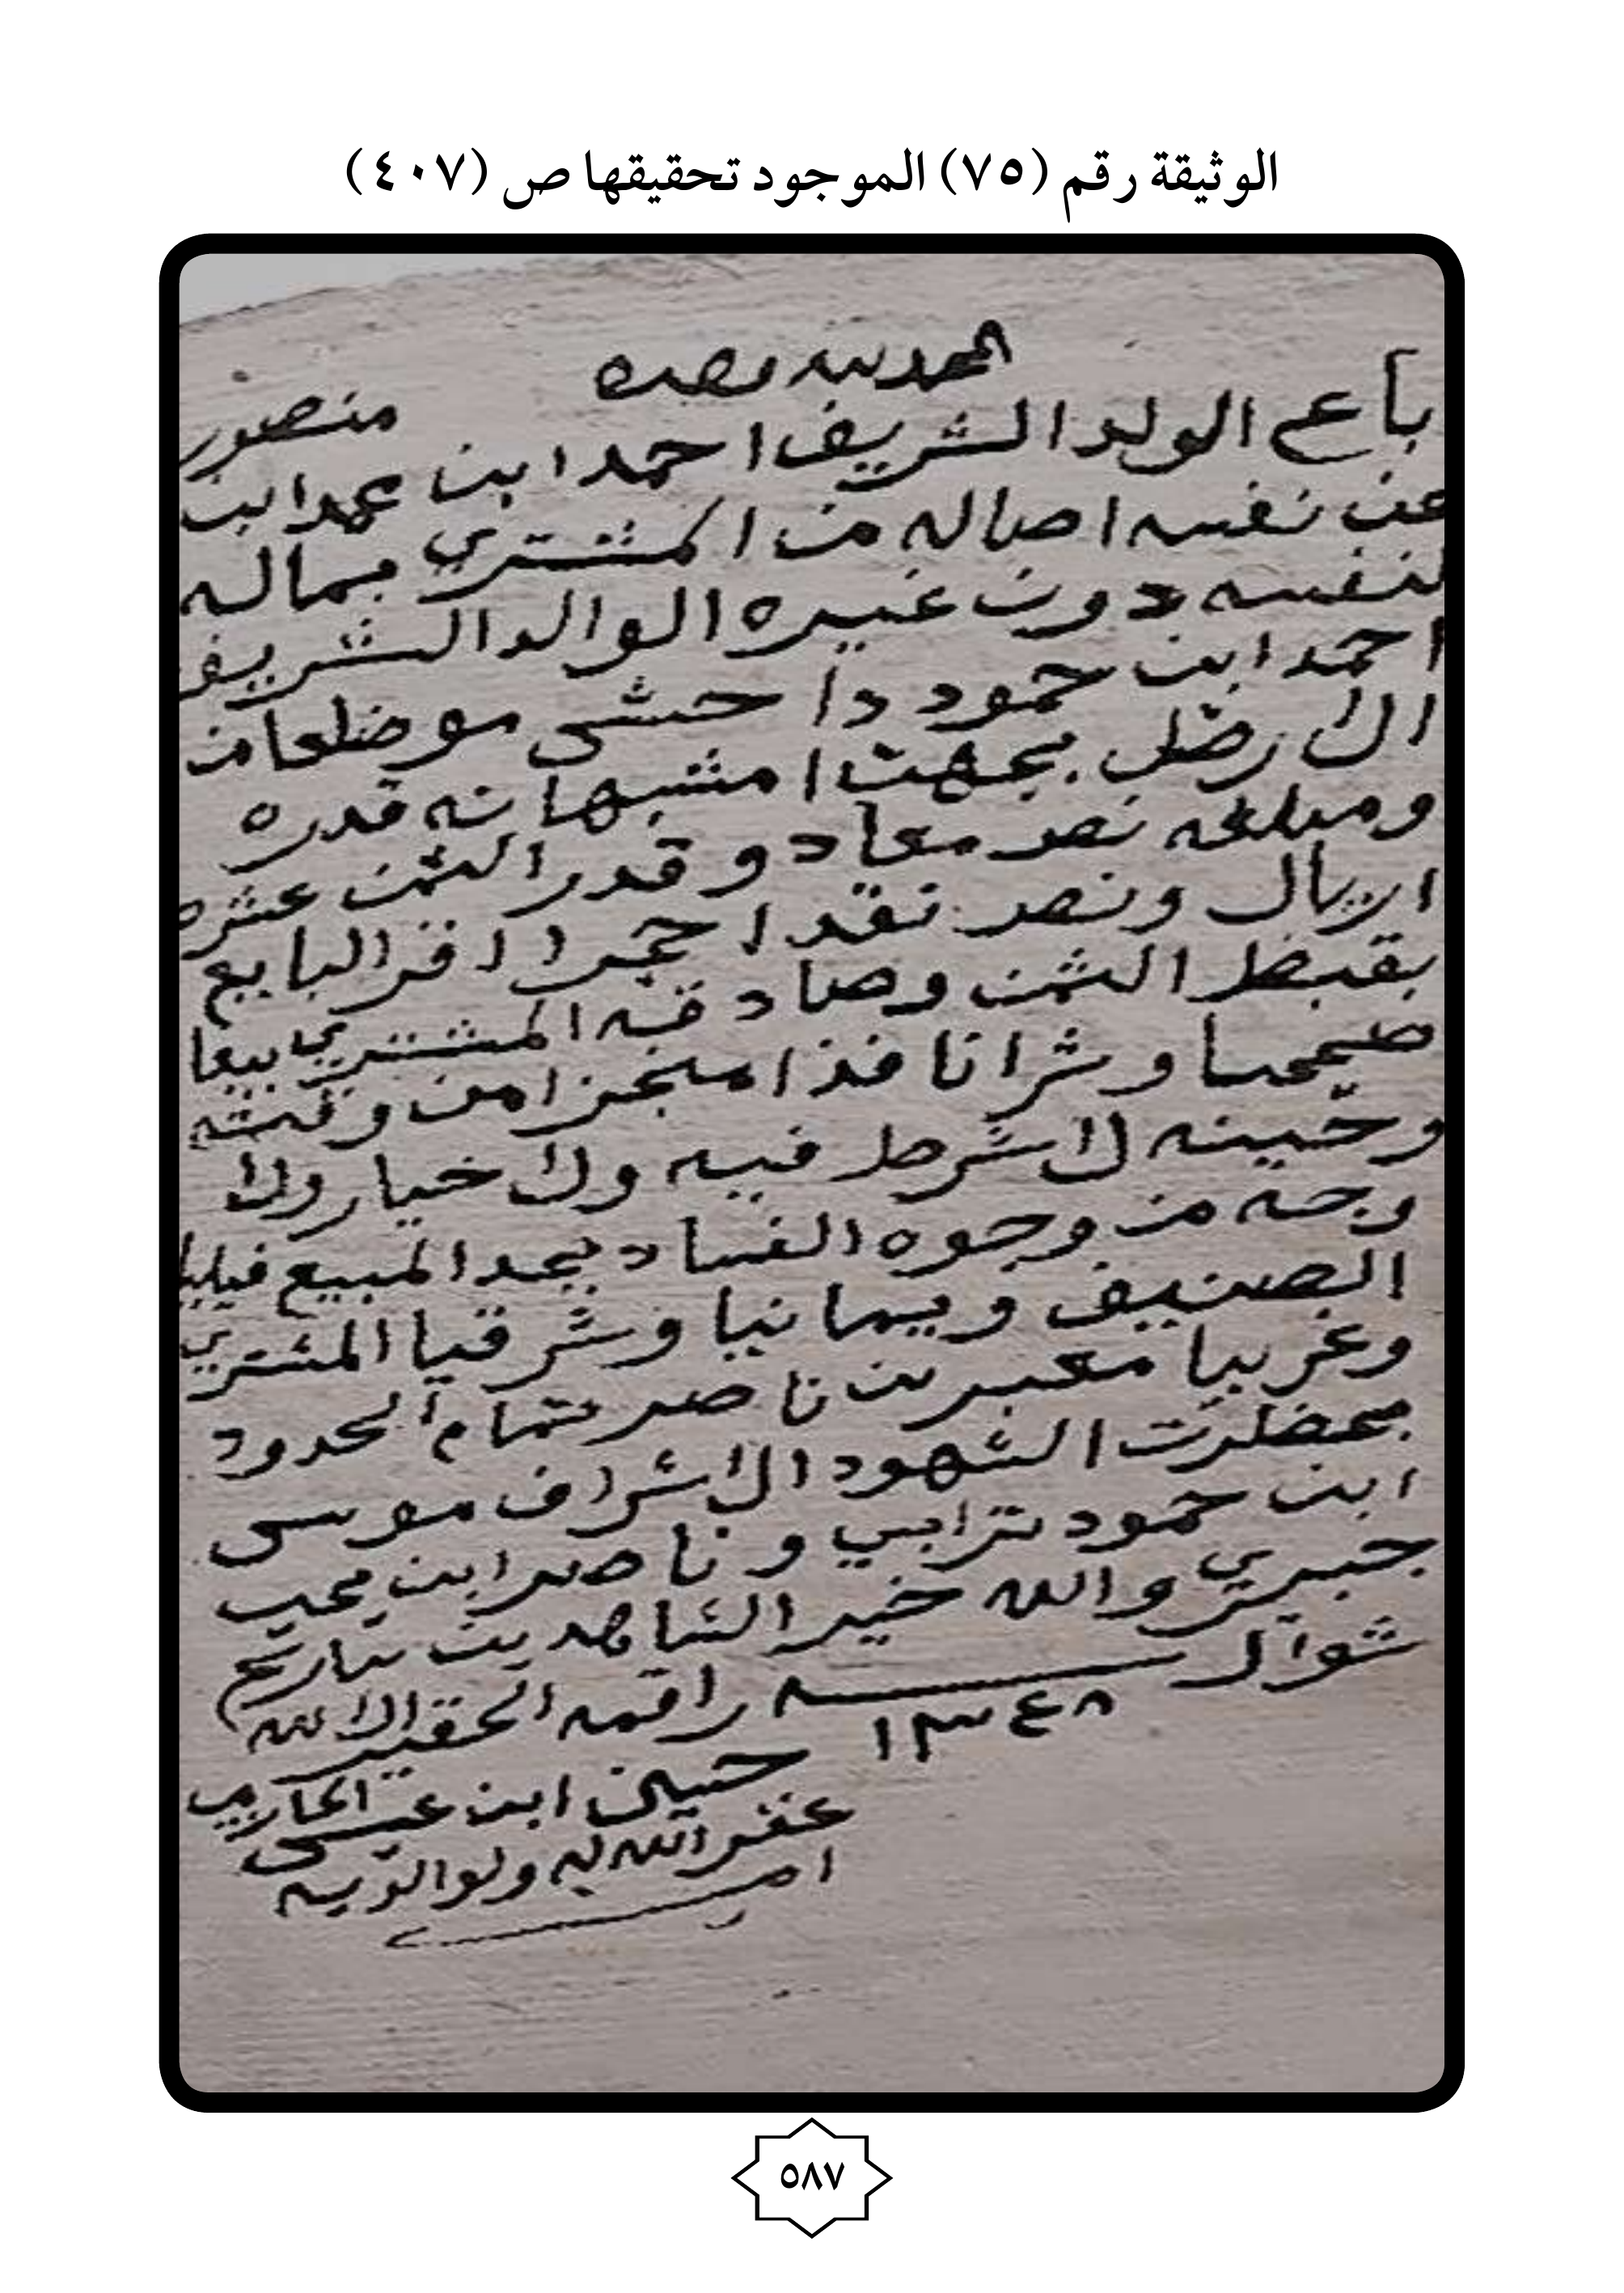 الوثيقة رقم (٧٥) الموجود تحقيقها ص (٤٠٧)
الحمد لله وحده
باع الولد الشريف احمد ابن محمد ابن منصور
عن نفسه اصاله من المشتري بماله
لنفسه دون غيره الوالد الشريف
احمد ابن حمود دا حشى موضلعا من
الارض بجهت امشبهانه قدره
ومبلغه نصر معاد وقدر الثمن عشره
اريال ونصر نقد احجرا اقر البايع
بقبظ الثمن وصادقه المشتري بيعا
صحيحا وشرا نافذا منجزا من وقته
وحينه لا شرط فيه ولا خيار ولا
وجه من وجوه الفساد يحد المبيع قبليا
الصنيف ويمانيا وشرقيا المشتري
وغربيا معبر بن ناصر بتمام الحدود
بمحظرت الشهود الاشراف موسى
ابن حمود ترابي وناصر ابن محب
جبري والله خير الشاهدين بتاريخ
شوال سـنـه ١٣٤٨ راقمه الحقير الا الله
حسين ابن عيسى الحازمي
غفر الله له ولوالديه
امين
٥٨٧